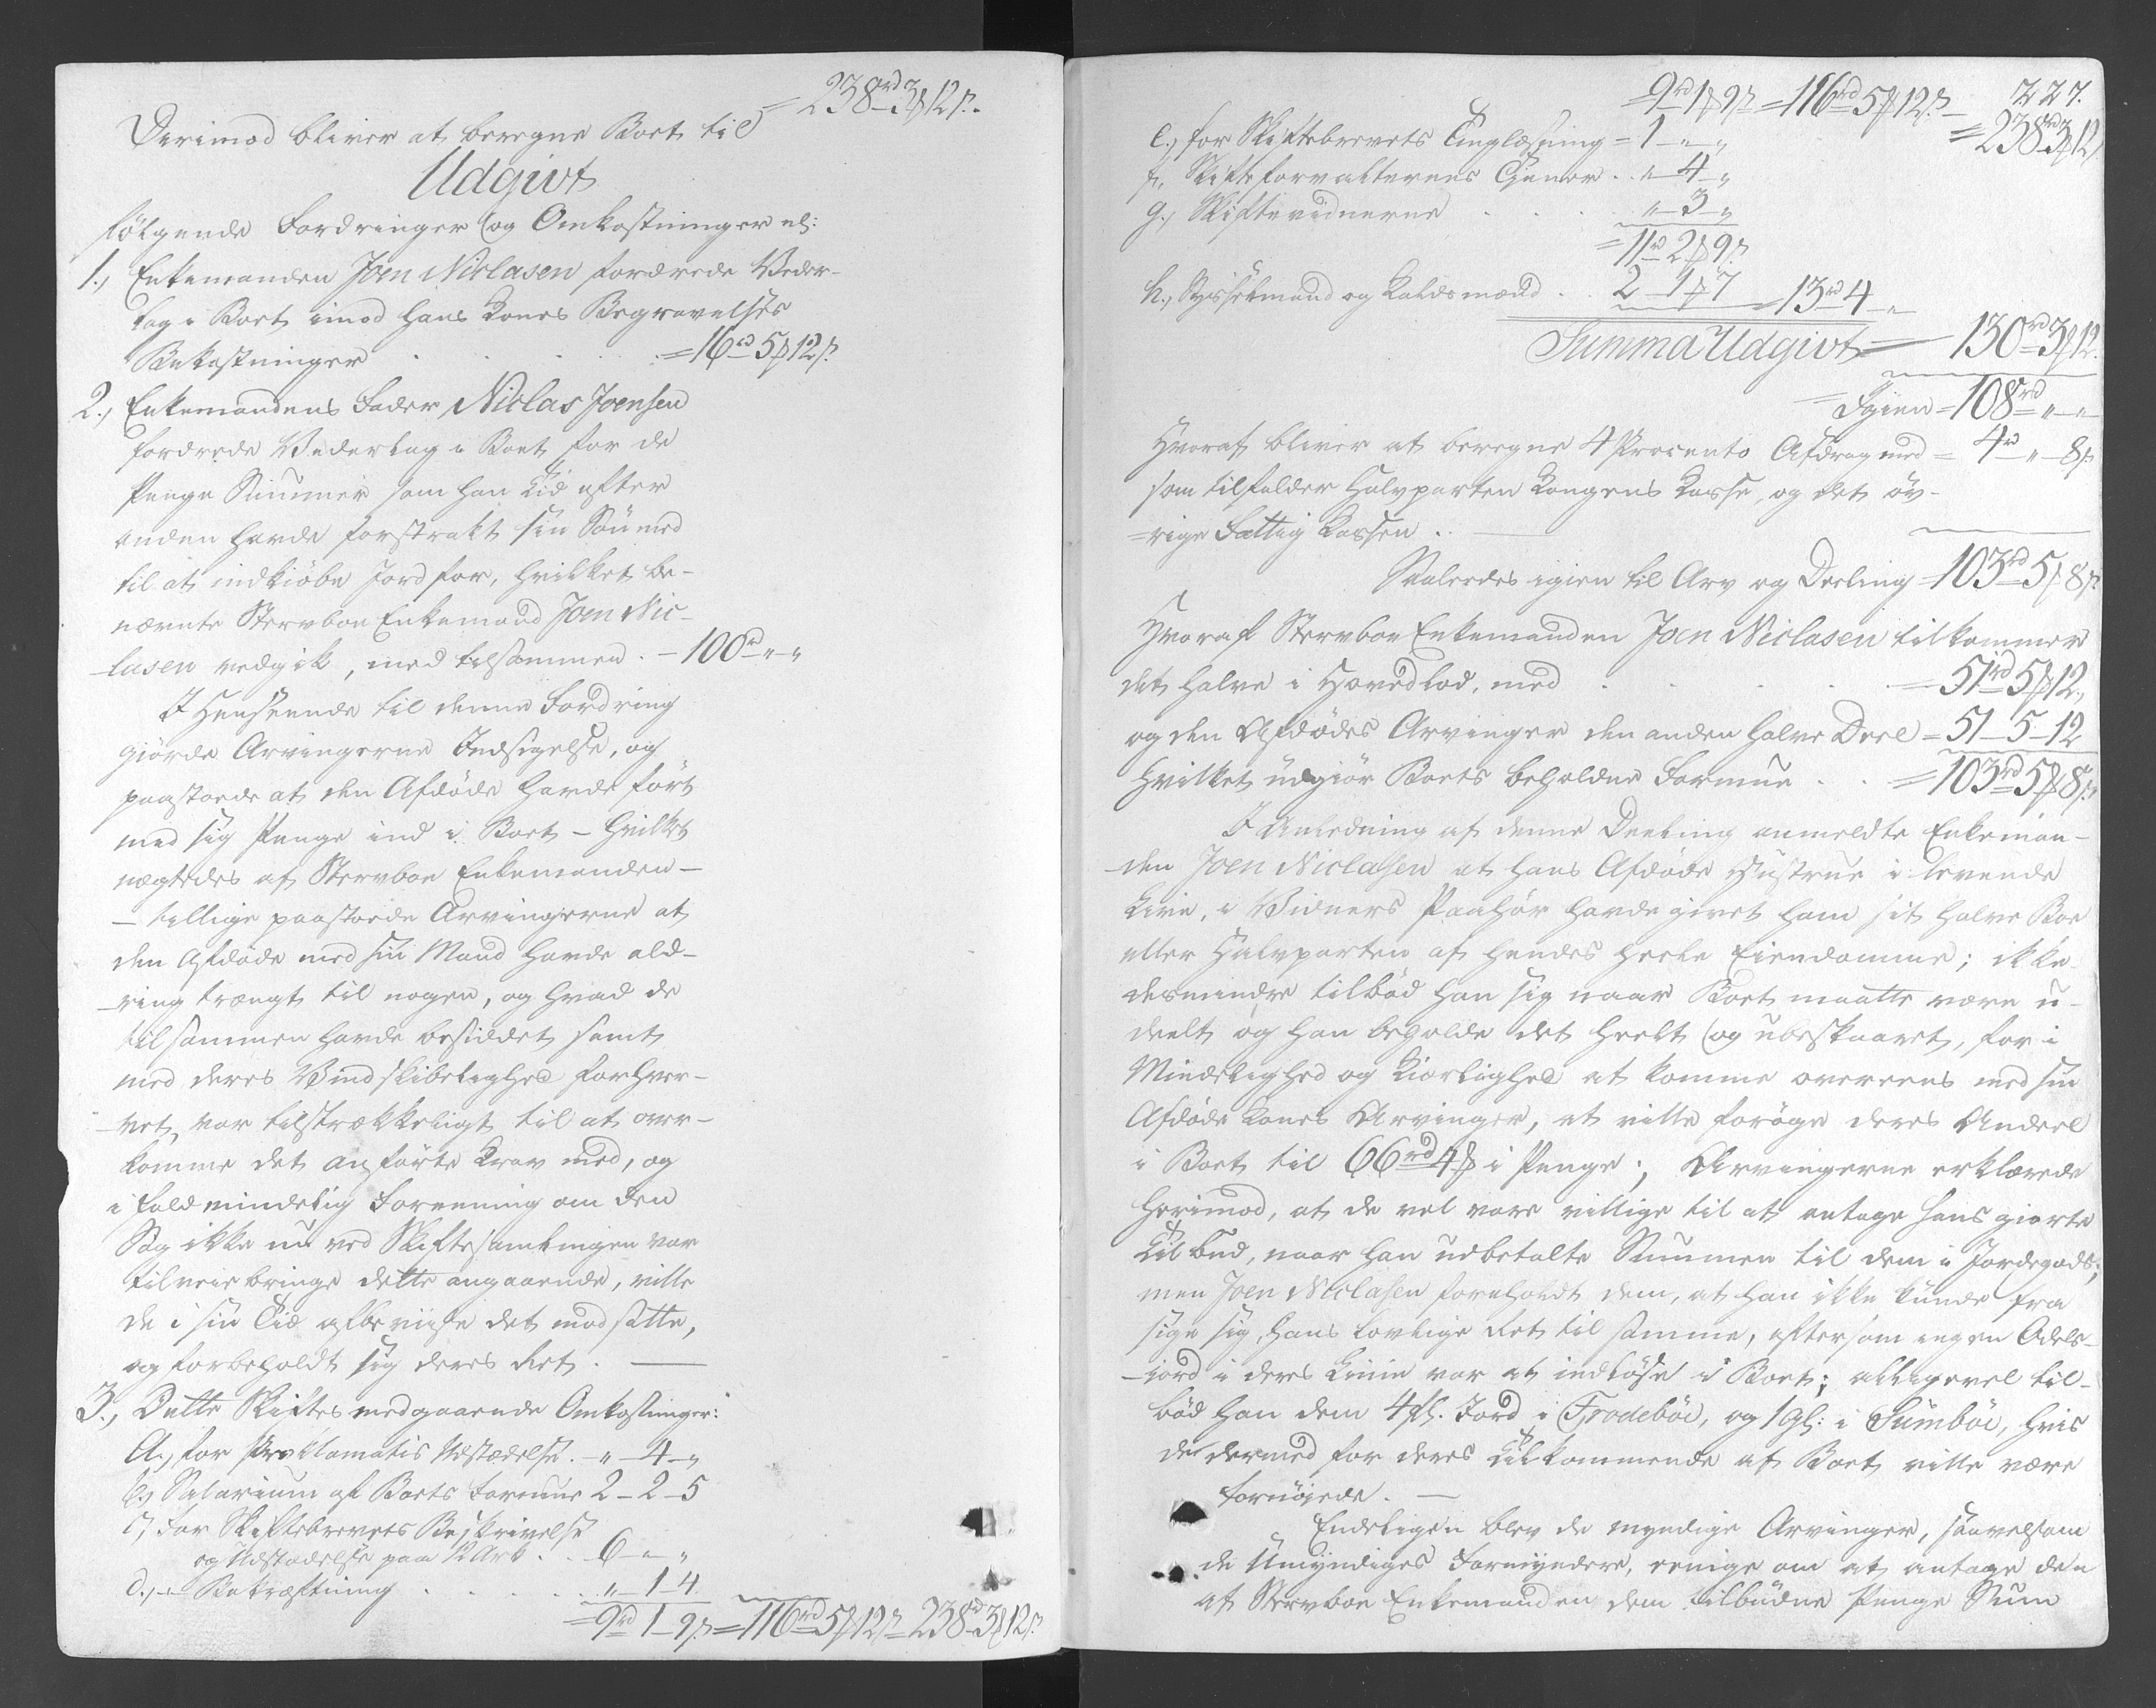 = 238rd 3ß 12ß.
Derimod bliver at beregne Boet til
Udgivt
følgende Fordringer og Omkostninger nl:
1., Enkemanden Joen Niclasen fordrede Veder-
lag i Boet imod hans Kones Begravelses
Bekostninger . . . . = 16rd 5ß 12ß.
2., Enkemandens Fader Niclas Joensen
fordrede Vederlag i Boet for de
Penge Summer som han Tid efter
anden havde forstrakt sin Søn med
til at indkiøbe Jord for, hvilket be-
nævnte Stervboe Enkemand Joen Nic-
lasen vedgik, med tilsammen. - 100rd „ - „
I Henseende til denne Fordring
giorde Arvingerne Indsigelse, og
paastoede at den Afdøde havde ført
med sig Penge ind i Boet - hvilket
nægtedes af Stervboe Enkemanden -
- tillige paastoede Arvingerne at
den Afdøde med sin Mand havde ald-
-ring trængt til nogen, og hvad de
tilsammen havde besiddet samt
med deres Vindskibelighed forhver-
-vet, var tilstrækkeligt til at over-
komme det anførte Krav med, og
i fald mindelig Forening om den
Sag ikke nu ved Skiftesamlingen var
tilveiebringe dette angaaende, ville
de i sin Tid afbeviise det modsatte,
og forbeholdt sig deres Ret. —
3., Dette Skiftes medgaaende Omkostninger:
a., for Proklamatis Udstædelse. - „ - 4 - „
b., Salarium af Boets Formue 2 - 2 - 5
c., For Skiftebrevets Beskrivelse
og Udstædelse paa 12 Ark . . 6 - „ - „
d., - Bekræftning . . . . „ - 1 - 4
= 9rd 1 - 9ß = 116rd 5ß 12ß = 238rd 3ß 12ß
227.
= 9rd 1ß 9ß = 116rd 5ß 12ß = 238rd 3ß 12
e., for Skiftebrevets Tinglæsning = 1 - „ - „
f., Skifteforvalterens Tjener . . „ - 4 - „
g., Skiftevidnerne . . . „ - 3 - „
= 11rd 2ß 9ß
h., Sysselmand og Kaldsmænd . . 2 - 1ß 7 = 13rd 4 - „
Summa Udgivt = 130rd 3ß 12.
Igien = 108rd „ - „
Hvoraf bliver at beregne 4 Procento Afdrag med = 4rd „ - 8ß
som tilfalder Halvparten Kongens Kasse, og det øv-
=rige Fattig Kassen . . —
Saaledes igien til Arv og Deeling = 103rd 5ß 8ß
Hvoraf Stervboe Enkemanden Joen Niclasen tilkommer
det halve i Hovedlod, med . . . . = 51rd 5ß 12.
og den Afdødes Arvinger den anden halve Deel = 51 - 5 - 12
Hvilket udgiør Boets beholdne Formue . . = 103rd 5ß 8ß
I Anledning af denne Deeling anmeldte Enkeman-
-den Joen Niclasen at hans Afdøde Hustrue i levende
Live, i Vidners Paahør havde givet ham sit halve Boe
eller Halvparten af hendes heele Eiendomme; ikke
desmindre tilbød han sig naar Boet maatte være u-
deelt og han beholde det heelt og ubeskaaret, for i
Mindelighed og Kiærlighed at komme overeens med sin
Afdøde Kones Arvinger, at ville forøge deres Andeel
i Boet til 66rd 4ß i Penge; Arvingerne erklærede
herimod, at de vel vare villige til at antage hans giorte
Tilbud, naar han udbetalte Summen til dem i Jordegods;
men Joen Niclasen foreholdt dem, at han ikke kunde fra
sige sig, hans lovlige Ret til samme, eftersom ingen Odels-
-iord i deres Linie var at indløse i Boet; alligevel til-
bød han dem 4 gl. Jord i Frodebøe, og 1 gl: i Sumbøe, hvis
de dermed for deres Tilkommende af Boet ville være
fornøyede. —
Endeligen blev de myndige Arvinger, saavelsom
de Umyndiges Formyndere, eenige om at antage den
af Stervboe Enkemanden dem tilbudne Penge Sum